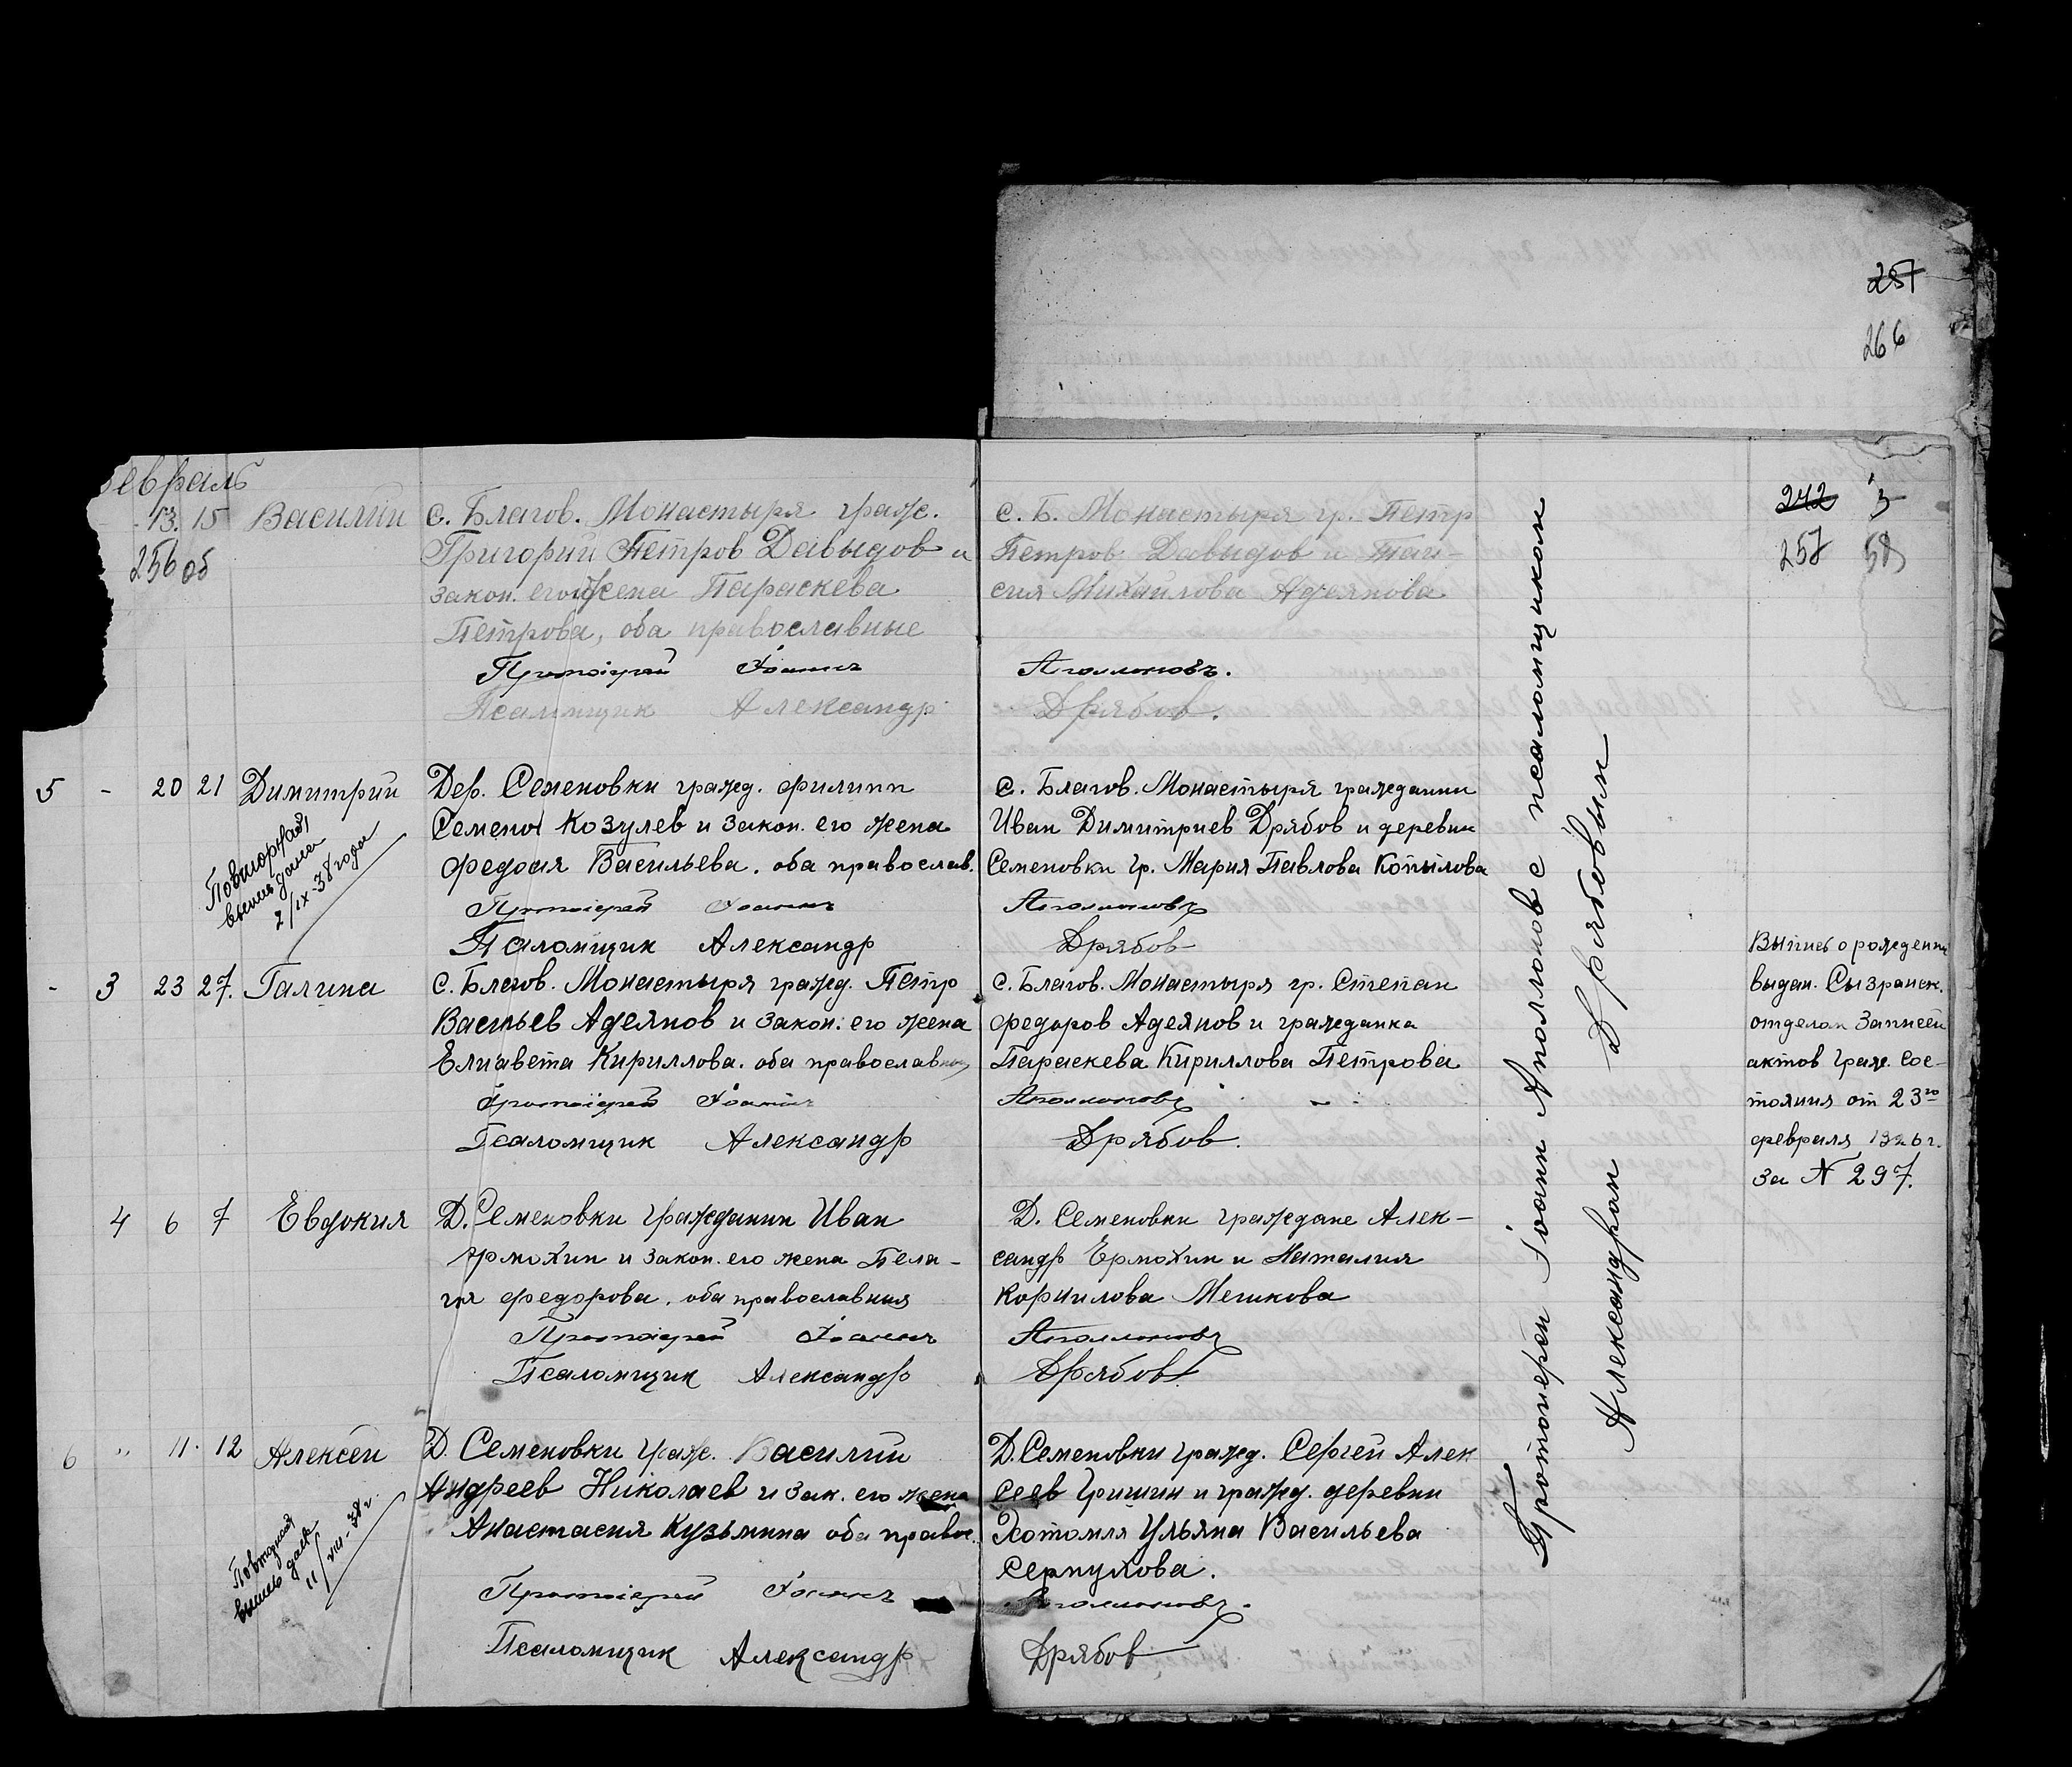 257
266
евраль
13. 15 Василий с. Благов. Монастыря граж.
256 об
Григорий Петров Давыдов и
закон. его жена Параскева
Петрова, оба православные
Протоіерей Іоаннъ
Псаломщик Александр
с. Б. Монастыря гр. Петр
Петров Давыдов и Таи-
сия Михайлова Адеянова
Аполлоновъ.
Дрябов.
242 3
257 58
5 - 20 21 Димитрий Дер. Семеновки гражд. Филипп
Семенов Козулев и закон. его жена
Федосия Васильева. оба православ.
Протоіерей Іоаннъ
Псаломщик Александр
Повторная
выпись дана
2/IX-38 года
с. Благов. Монастыря гражданин
Иван Димитриев Дрябов и деревни
Семеновки гр. Мария Павлова Копылова
Аполлоновъ
Дрябов
- 3 23 27. Галина с. Благов. Монастыря гражд. Петр
Васильев Адеянов и закон. его жена
Елисавета Кириллова. оба православные
Протоіерей Іоаннъ
Псаломщик Александр
с. Благов. Монастыря гр. Степан
Федоров Адеянов и гражданка
Параскева Кириллова Петрова
Аполлоновъ
Дрябов.
Выпись о рождении
выдан. Сызранск.
отделом Записей
актов граж. Сос-
тояния от 23го
февраля 1926 г.
За № 297.
4 6 7 Евдокия Д. Семеновки Гражданин Иван
Ермохин и закон. его жена Пела-
гия Федорова. оба православныя
Протоіерей Іоаннъ
Псаломщик Александр
Д. Семеновки граждане Алек-
сандр Ермохин и Наталия
Корнилова Мешкова
Аполлоновъ
Дрябов
6 " 11. 12 Алексей Д. Семеновки граж. Василий
Андреев Николаев и зак. его жена
Анастасия Кузьмина оба правос.
Протоіерей Іоаннъ
Псаломщик Александр
Повторная
выпись дана
11/VIII-38 г.
Д. Семеновки гражд. Сергей Алек
сеев Гришин и гражд. деревни
Хотомля Ульяна Васильева
Серпухова.
Аполлоновъ.
Дрябов
Протоиерей Іоанн Аполлонов с псаломщиком
Александром Дрябовым